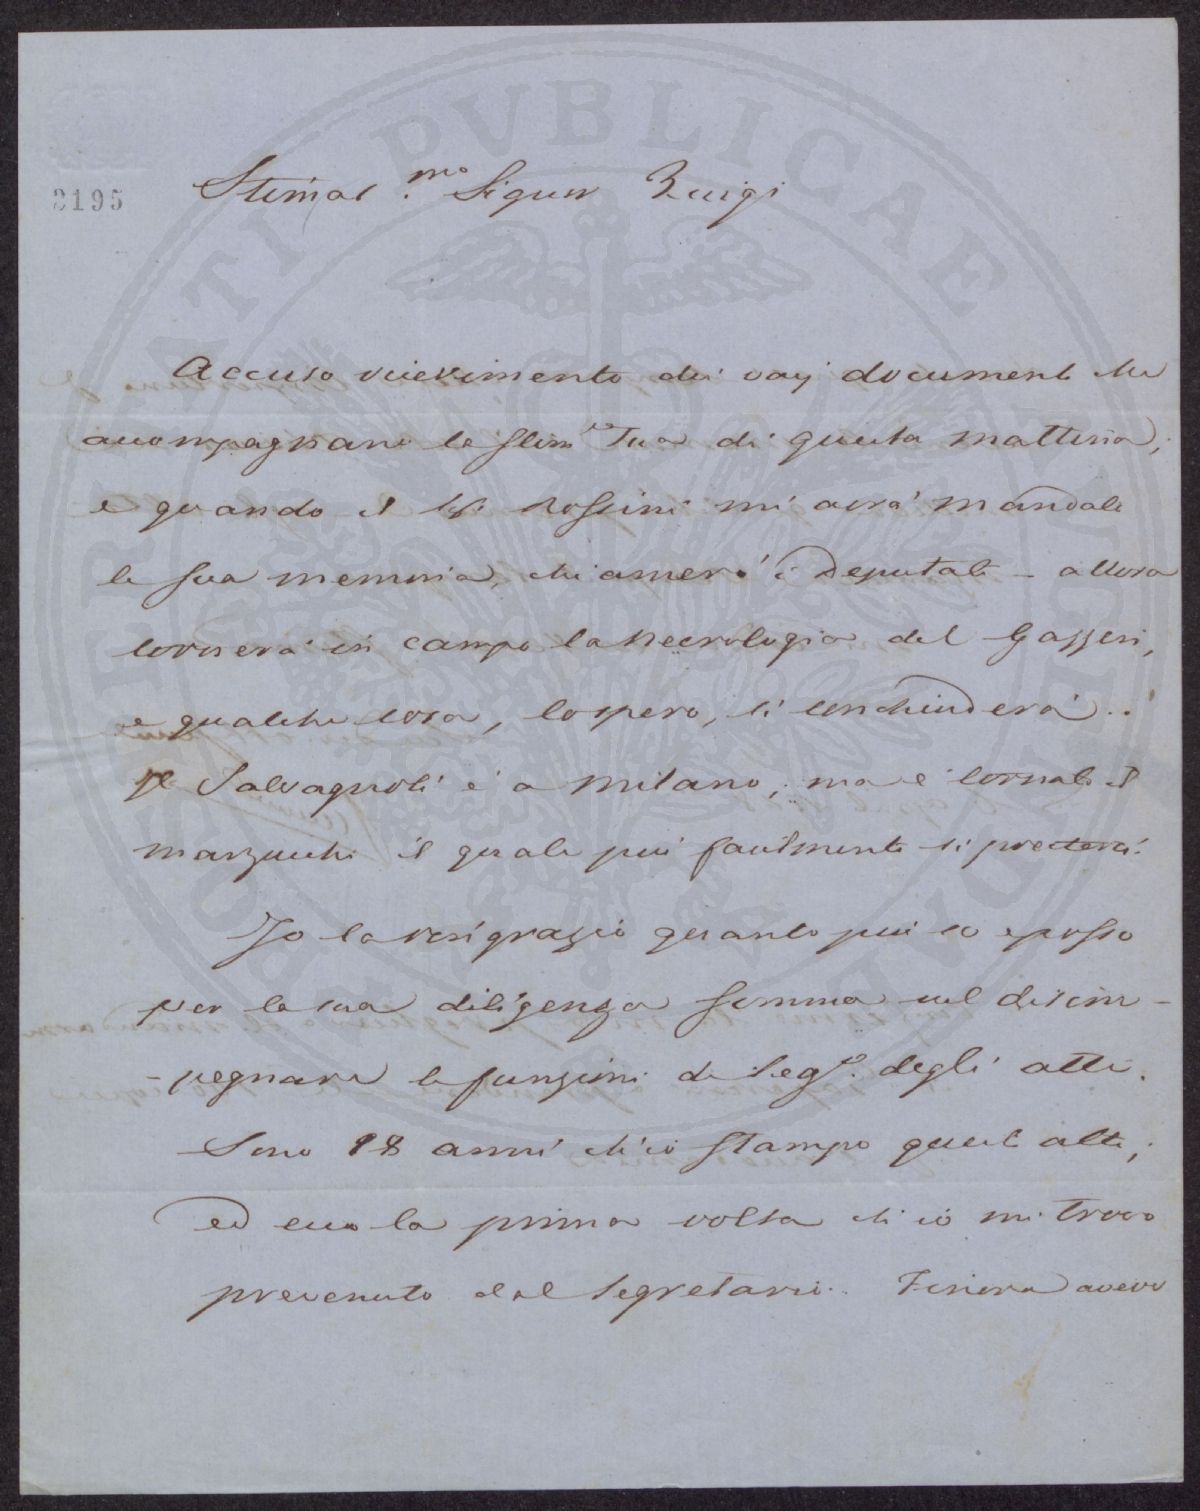 PUBLICAE
3195
Stimat.mo Signor Luigi
Accuso ricevimento dei vaj documenti che
accompagnano la stim.a Sua di questa mattina,
e quando il Sig. Rossini mi avrà mandato
la sua memoria, chiamerò i Deputati – allora
tornerà in campo la necrologia del Gazzeri,
e qualche cosa, lo spero, si conchiuderà..
Il Salvagnoli è a Milano; ma è tornato il
Marzucchi il quale più facilmente si presterà.
Io la ringrazio quanto più so e posso
per la sua diligenza somma nel disim-
-pegnare le funzioni di Seg.o degli atti.
Sono 18 anni ch'io stampo questi atti;
ed ecco la prima volta ch'io mi trovo
prevenuto dal Segretario. Finora avevo